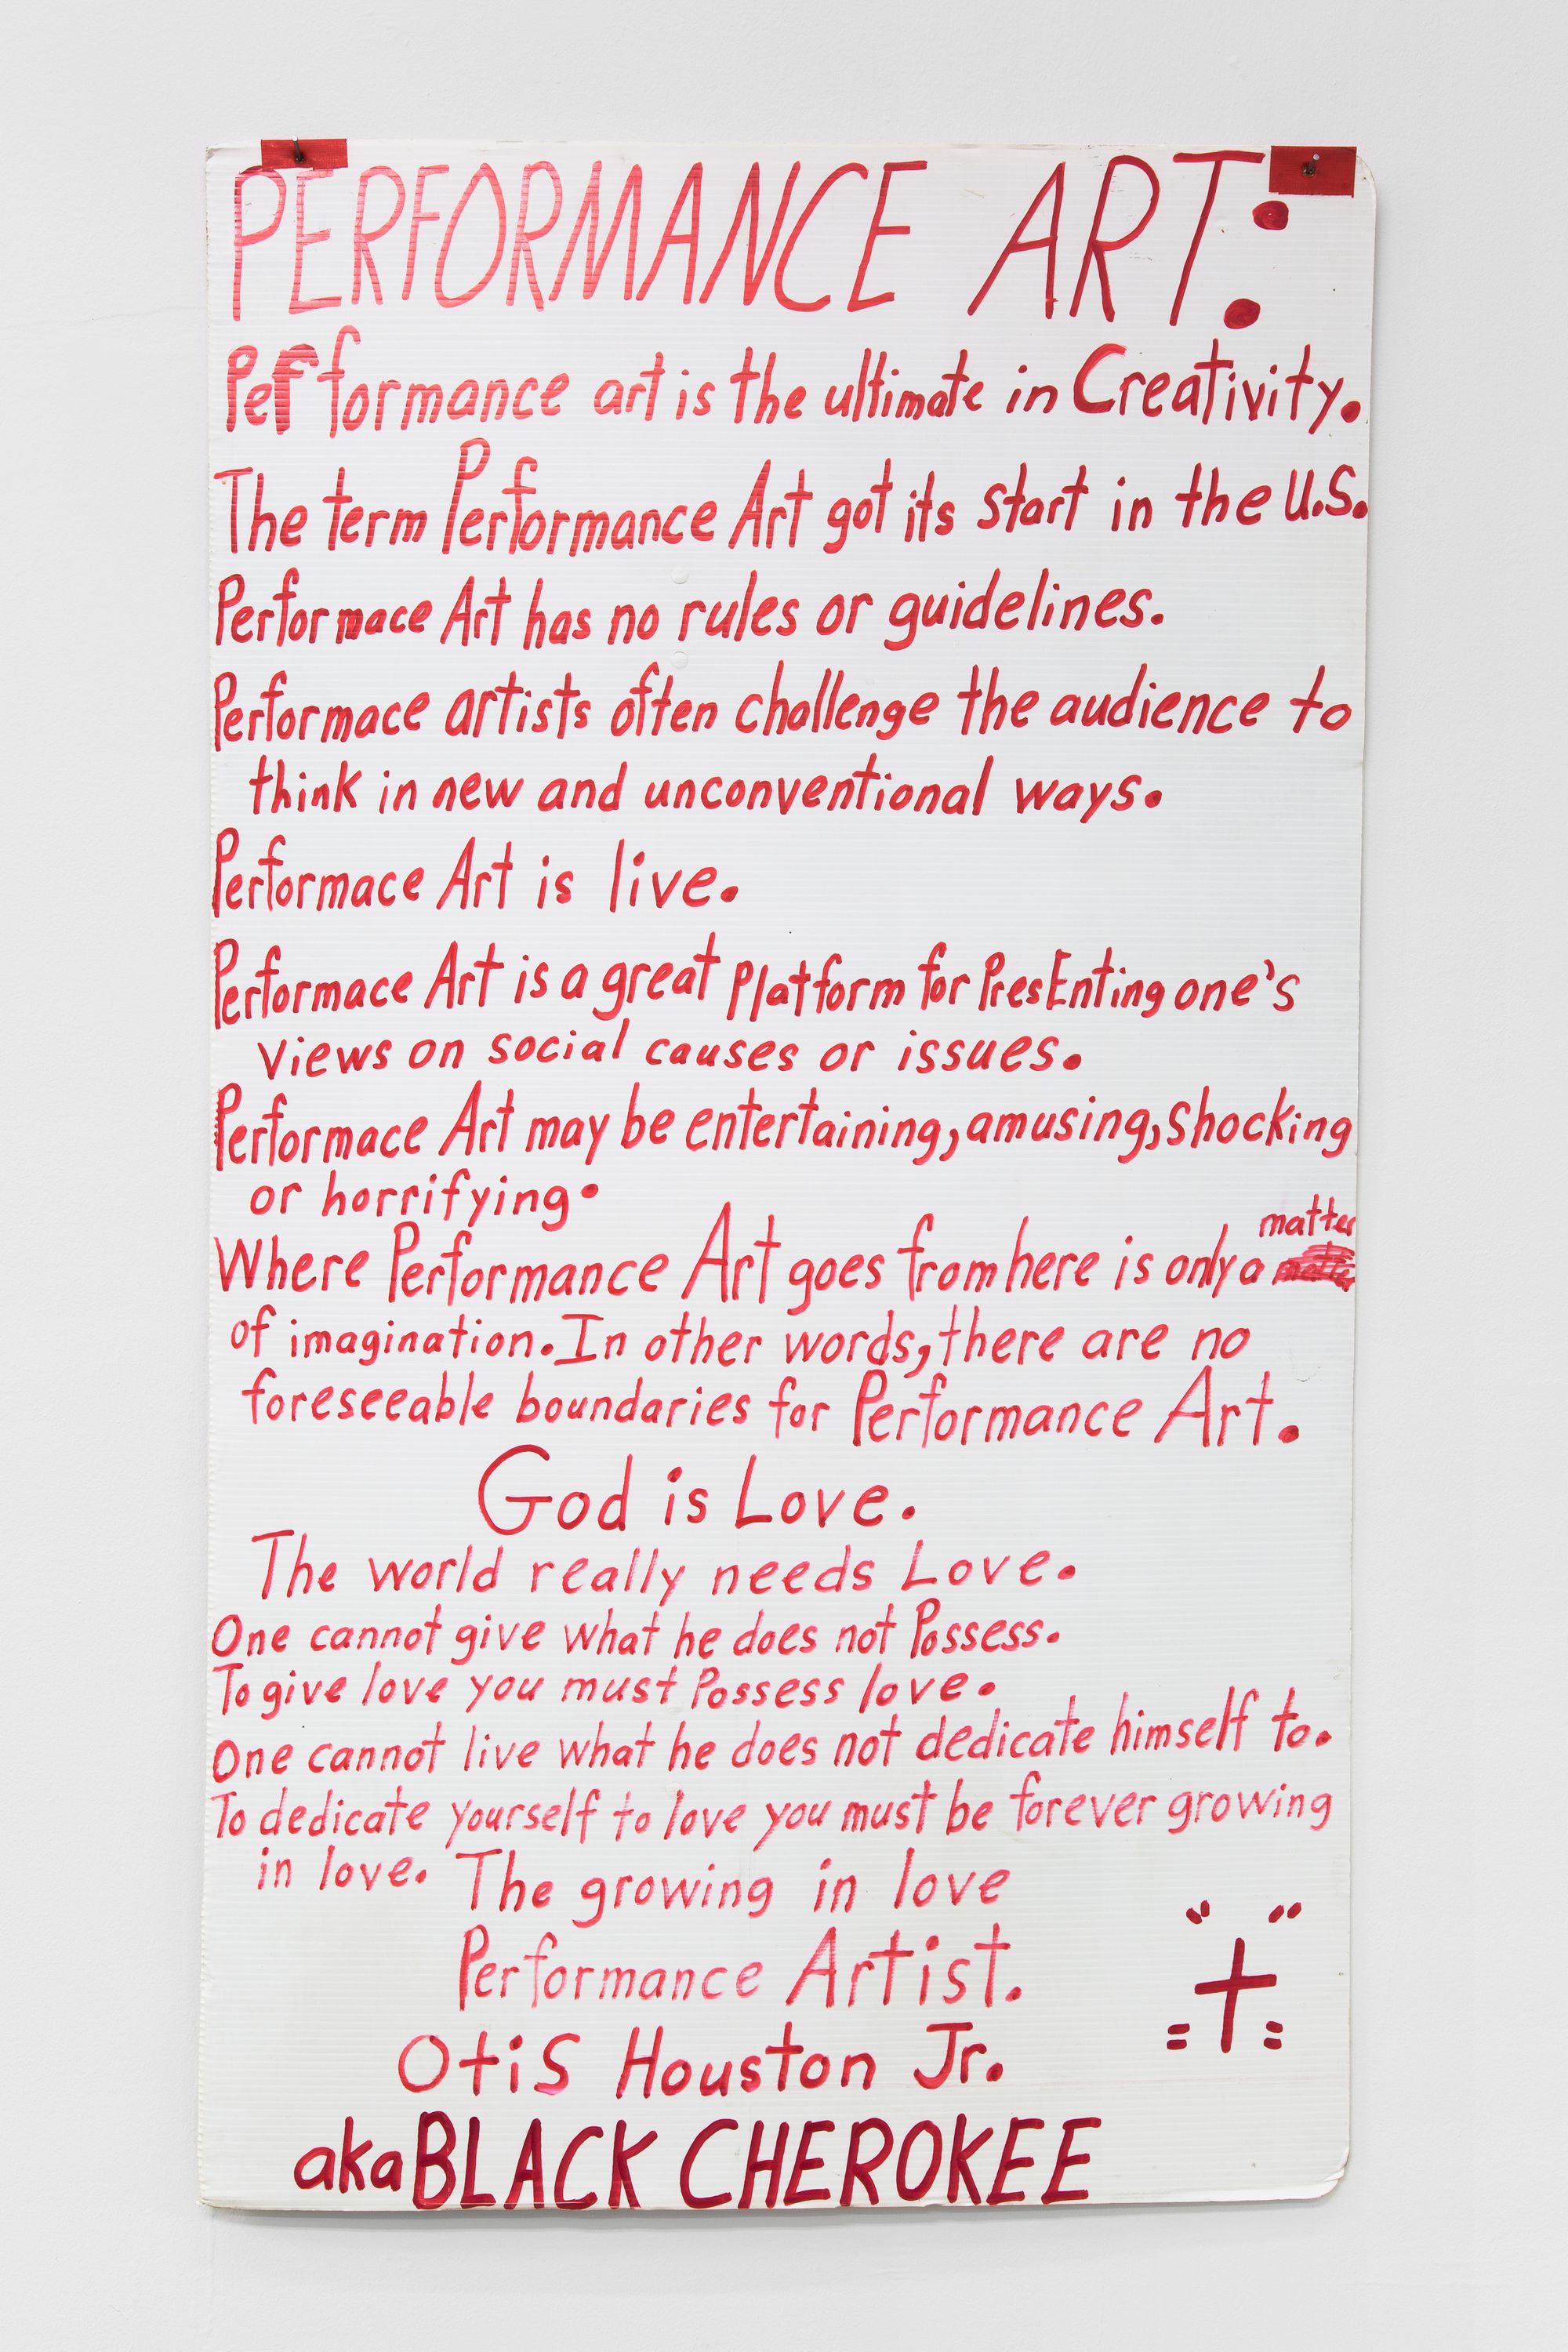 PERFORMANCE ART:
Performance art is the ultimate in Creativity.
The term Performance Art got its start in the U.S.
Performace Art has no rules or guidelines.
Performace artists often challenge the audience to
think in new and unconventional ways.
Performace Art is live.
Performace Art is a great Platform for PresEnting one's
views on social causes or issues.
Performace Art may be entertaining, amusing, shocking
or horrifying.
matter
Where Performance Art goes from here is only a
of imagination. In other words, there are no
foreseeable boundaries for Performance Art.
God is Love.
The world really needs Love.
One cannot give what he does not Possess.
To give love you must Possess love.
One cannot live what he does not dedicate himself to.
To dedicate yourself to love you must be forever growing
in love. The growing in love
Performance Artist.
Otis Houston Jr.
aka BLACK CHEROKEE